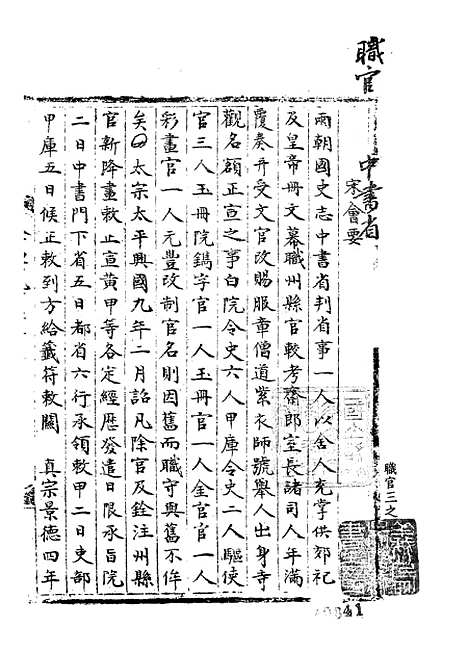 職官
中書省
宋會要
兩朝國史志中書省判省事一人以舍人充掌供郊祀
及皇帝冊文幕職州縣官較考齋郎室長諸司人年滿
覆奏并受文官改賜服章僧道紫衣師號舉人出身寺
觀名額正宣之事白院令史六人甲庫令史二人驅使
官三人玉冊院鐫字官一人玉冊官一人金官官一人
彩畫官一人元豐改制官名則因舊而職守與舊不侔
矣 太宗太平興國九年二月詔凡除官及銓注州縣
官新降畫敕止宣黃甲等各定經歷發遣日限承旨院
二日中書門下省五日都省六行承領敕甲二日吏部
甲庫五日候正敕到方給籤符敕關 真宗景德四年
職官三之
41